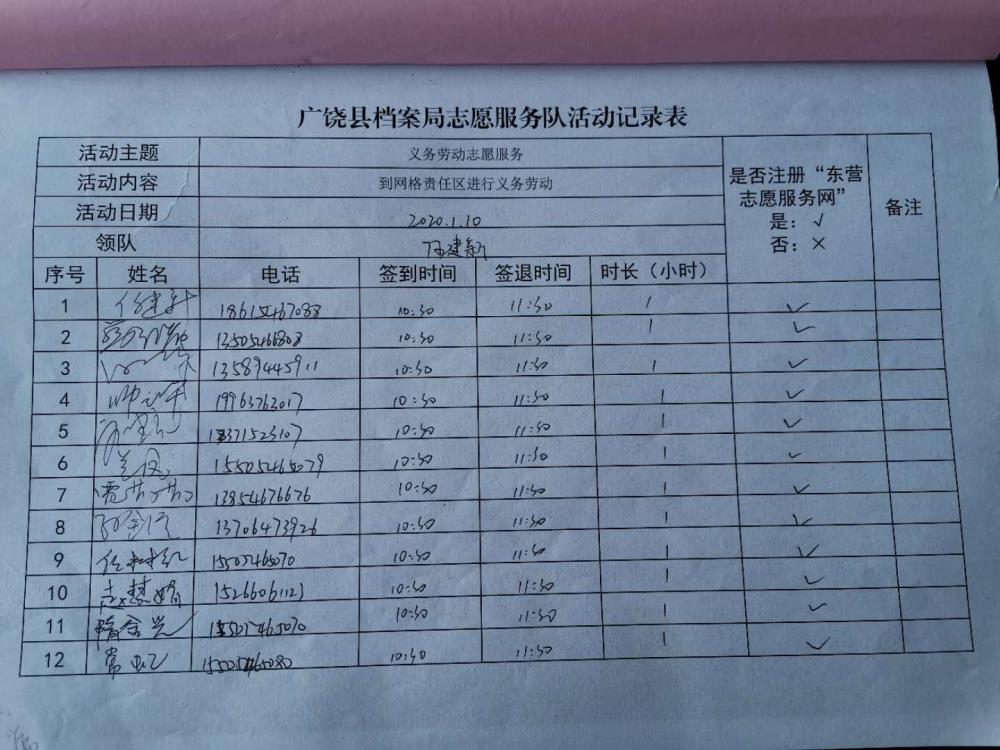 广饶县档案局志愿服务队活动记录表
活动主题 义务劳动志愿服务
活动内容 到网格责任区进行义务劳动
活动日期 2020.1.10
领队 建新
是否注册“东营
志愿服务网”
是：√
否：×
备注
序号 姓名 电话 签到时间 签退时间 时长（小时）
1 18615467088 10:30 11:30 1 ✓
2 13505466808 10:30 11:30 1 ✓
3 13589445911 10:30 11:30 1 ✓
4 19963763017 10:30 11:30 1 ✓
5 13371523107 10:30 11:30 1 ✓
6 15505465079 10:30 11:30 1 ✓
7 13854676676 10:30 11:30 1 ✓
8 13706473926 10:30 11:30 1 ✓
9 10:30 11:30 1 ✓
10 赵慧娟 15266061123 10:30 11:30 1 ✓
11 隋金兰 10:30 11:30 1 ✓
12 常虹 10:30 11:30 1 ✓